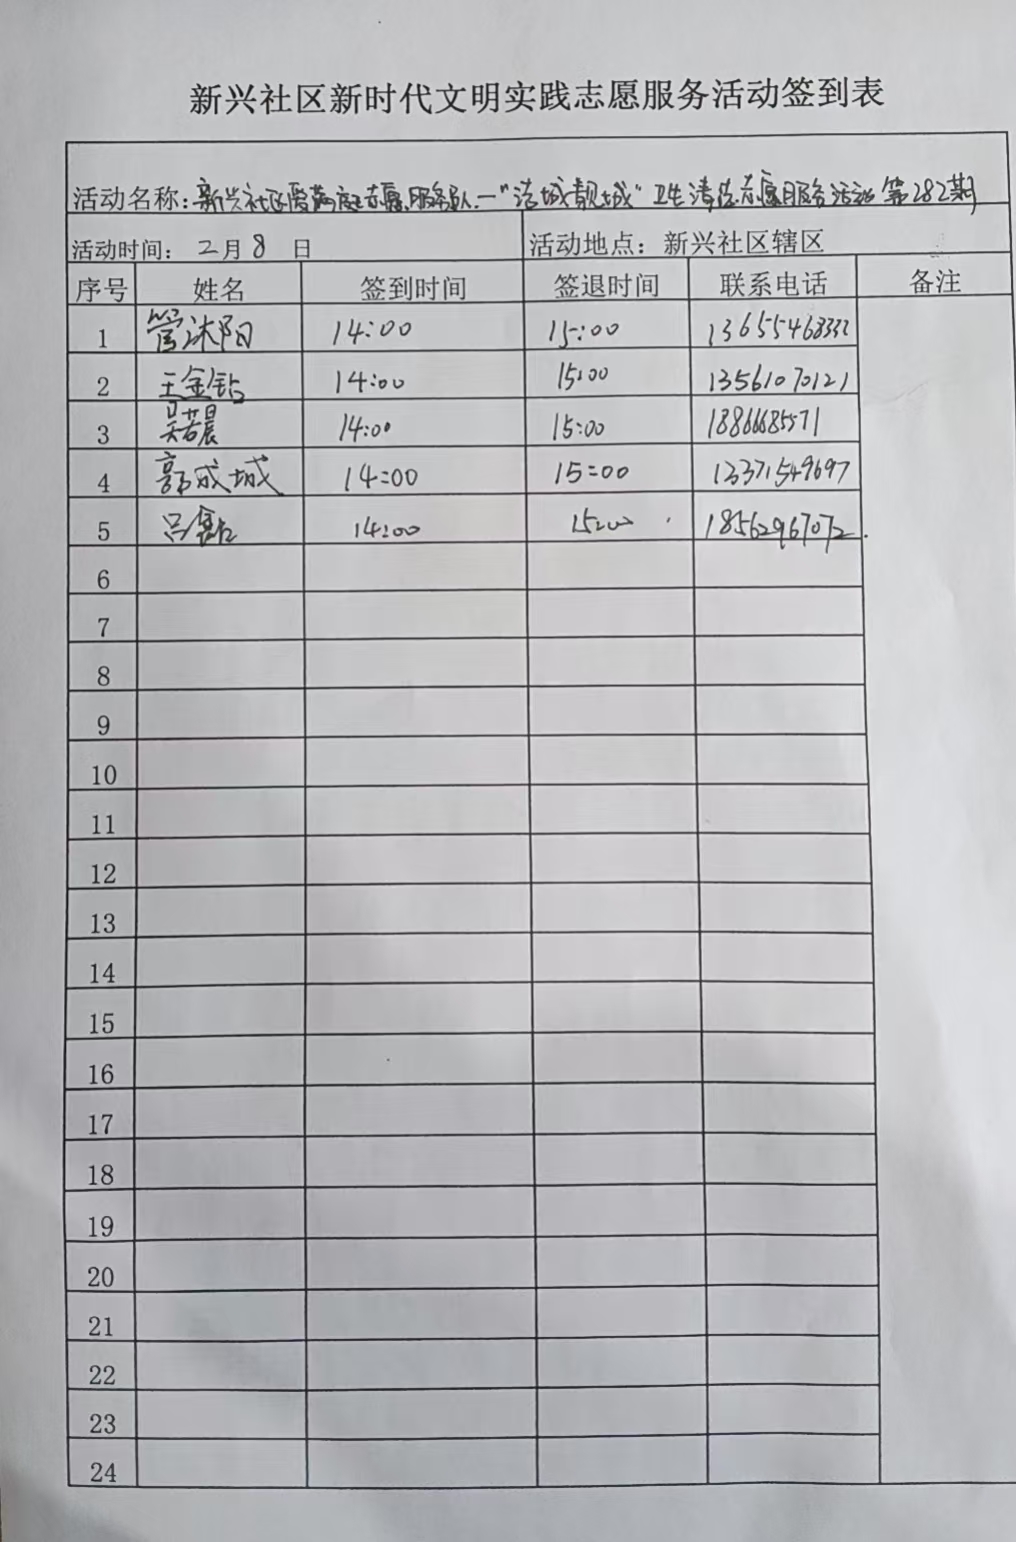 新兴社区新时代文明实践志愿服务活动签到表
活动名称：新兴社区爱满庭志愿服务队—"洁城靓城"卫生清洁志愿服务活动第282期
活动时间： 2月8 日 活动地点：新兴社区辖区
序号 姓名 签到时间 签退时间 联系电话 备注
1 管沐阳 14:00 15:00 13655468332
2 王金钻 14:00 15:00 13561070121
3 吴若晨 14:00 15:00 18866685571
4 郭成城 14:00 15:00 13371549697
5 吕 14:00 15:00 18562967072
6
7
8
9
10
11
12
13
14
15
16
17
18
19
20
21
22
23
24